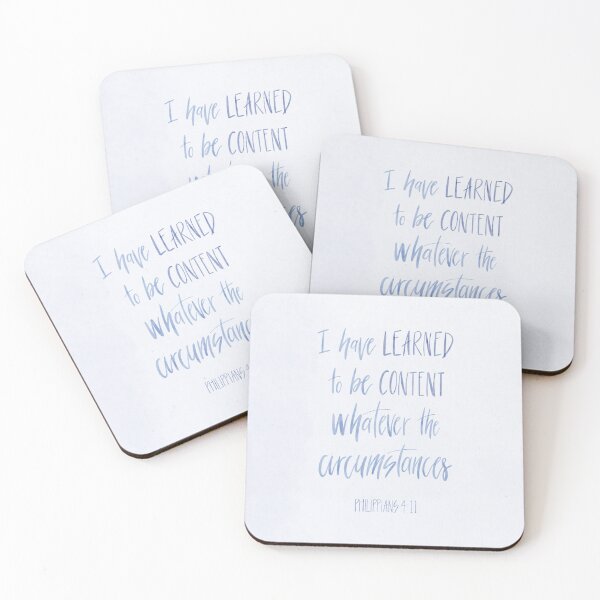 I have LEARNED
to be CONTENT
the
I have LEARNED
to be CONTENT
whatever the
circumstances
I have LEARNED
to be CONTENT
whatever the
circumstanc
PHILIPPIANS
I have LEARNED
to be CONTENT
whatever the
circumstances
PHILIPPIANS 4:11